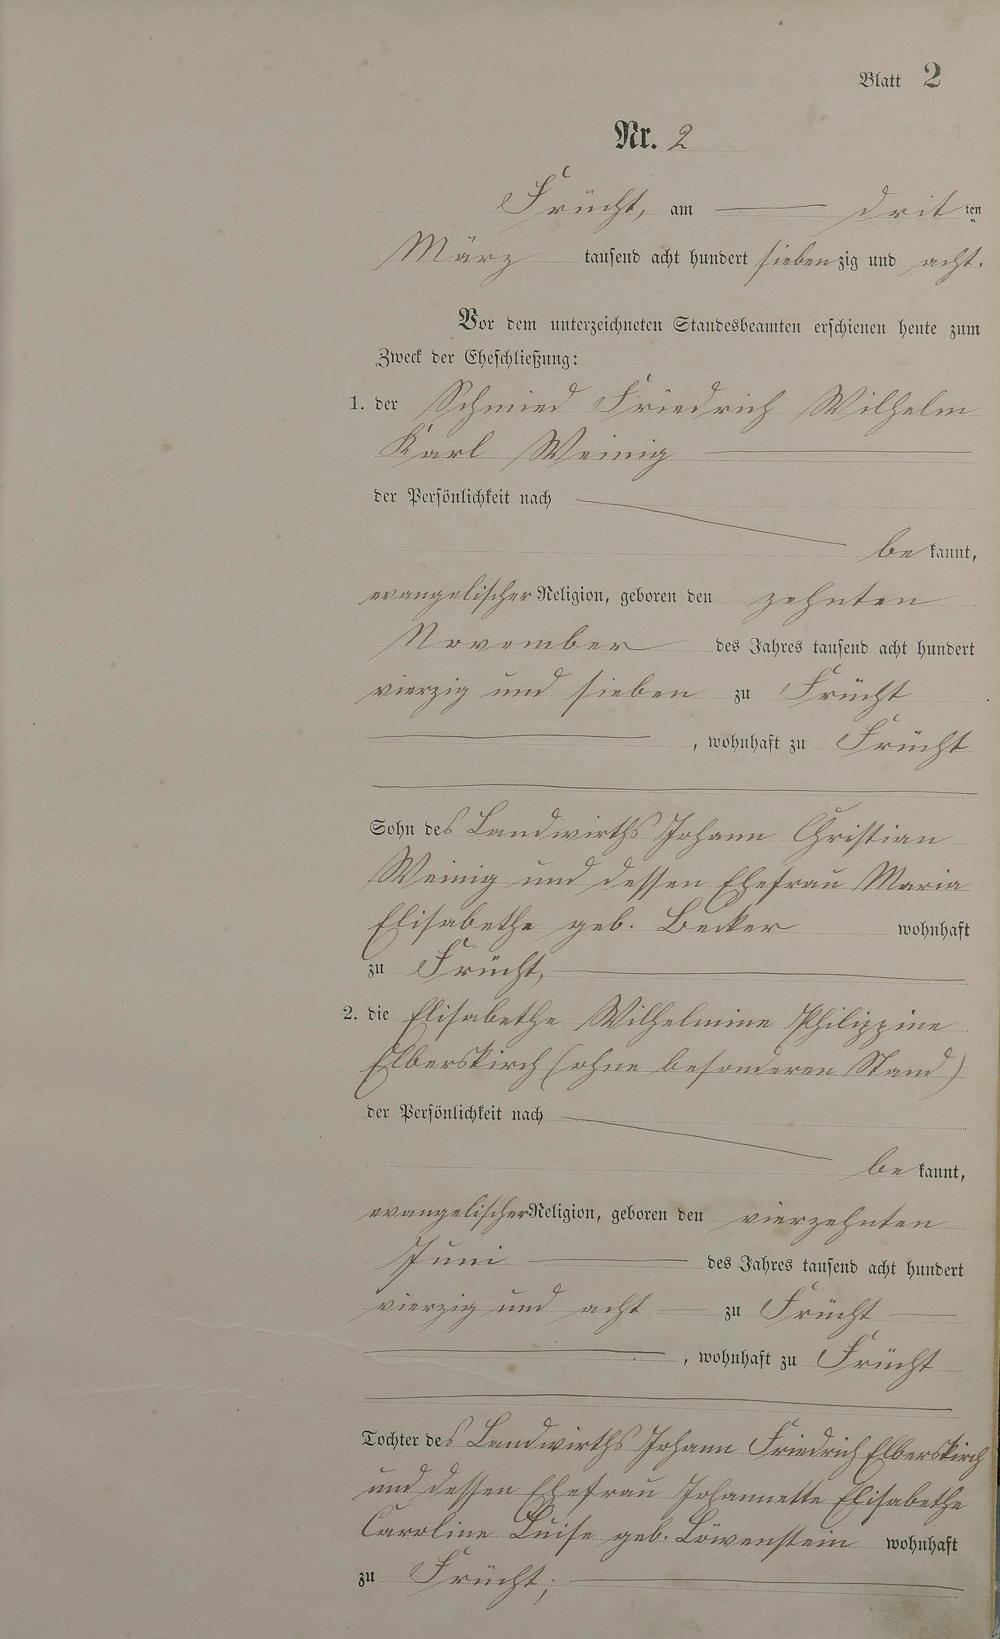 Blatt 2
Nr. 2
Frücht, am drit ten
März tausend acht hundert siebenzig und acht.
Vor dem unterzeichneten Standesbeamten erschienen heute zum
Zweck der Eheschließung:
1. der Schmied Friedrich Wilhelm
Karl Weinig
der Persönlichkeit nach
be kannt,
evangelischer Religion, geboren den zehnten
November des Jahres tausend acht hundert
vierzig und sieben zu Frücht
, wohnhaft zu Frücht
Sohn des Landwirths Johann Christian
Weinig und dessen Ehefrau Maria
Elisabethe geb. Becker wohnhaft
zu Frücht,
2. die Elisabethe Wilhelmine Philippine
Elberskirch (ohne besonderen Stand)
der Persönlichkeit nach
be kannt,
evangelischer Religion, geboren den vierzehnten
Juni des Jahres tausend acht hundert
vierzig und acht zu Frücht
, wohnhaft zu Frücht
Tochter des Landwirths Johann Friedrich Elberskirch
und dessen Ehefrau Johannette Elisabethe
Caroline Luise geb. Löwenstein wohnhaft
zu Frücht;